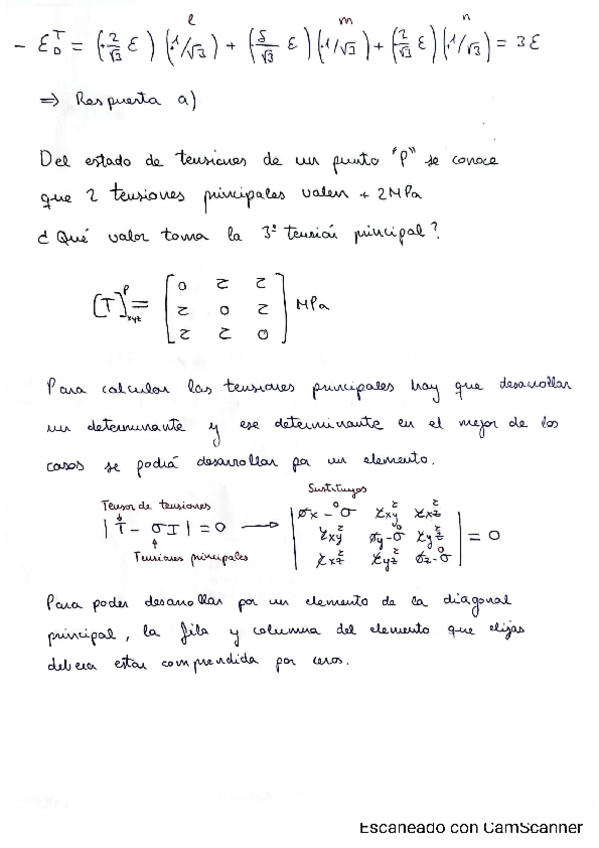 l m n
- ε_D^T = (2/√3 ε) (1/√3) + (5/√3 ε) (1/√3) + (2/√3 ε) (1/√3) = 3ε
=> Respuesta a)
Del estado de tensiones de un punto "P" se conoce
que 2 tensiones principales valen + 2MPa
¿Qué valor toma la 3ª tensión principal?
[T]^P_xyz = [0 2 2
2 0 2
2 2 0] MPa
Para calcular las tensiones principales hay que desarrollar
un determinante y ese determinante en el mejor de los
casos se podrá desarrollar por un elemento.
Sustituyos
Tensor de tensiones
|T - σI| = 0 → |σx^0 - σ τxy^2 τxz^2
τxy^2 σy^0 - σ τyz^2
τxz^2 τyz^2 σz^0 - σ| = 0
Tensiones principales
Para poder desarrollar por un elemento de la diagonal
principal, la fila y columna del elemento que elijas
debera estar comprendida por ceros.
Escaneado con CamScanner